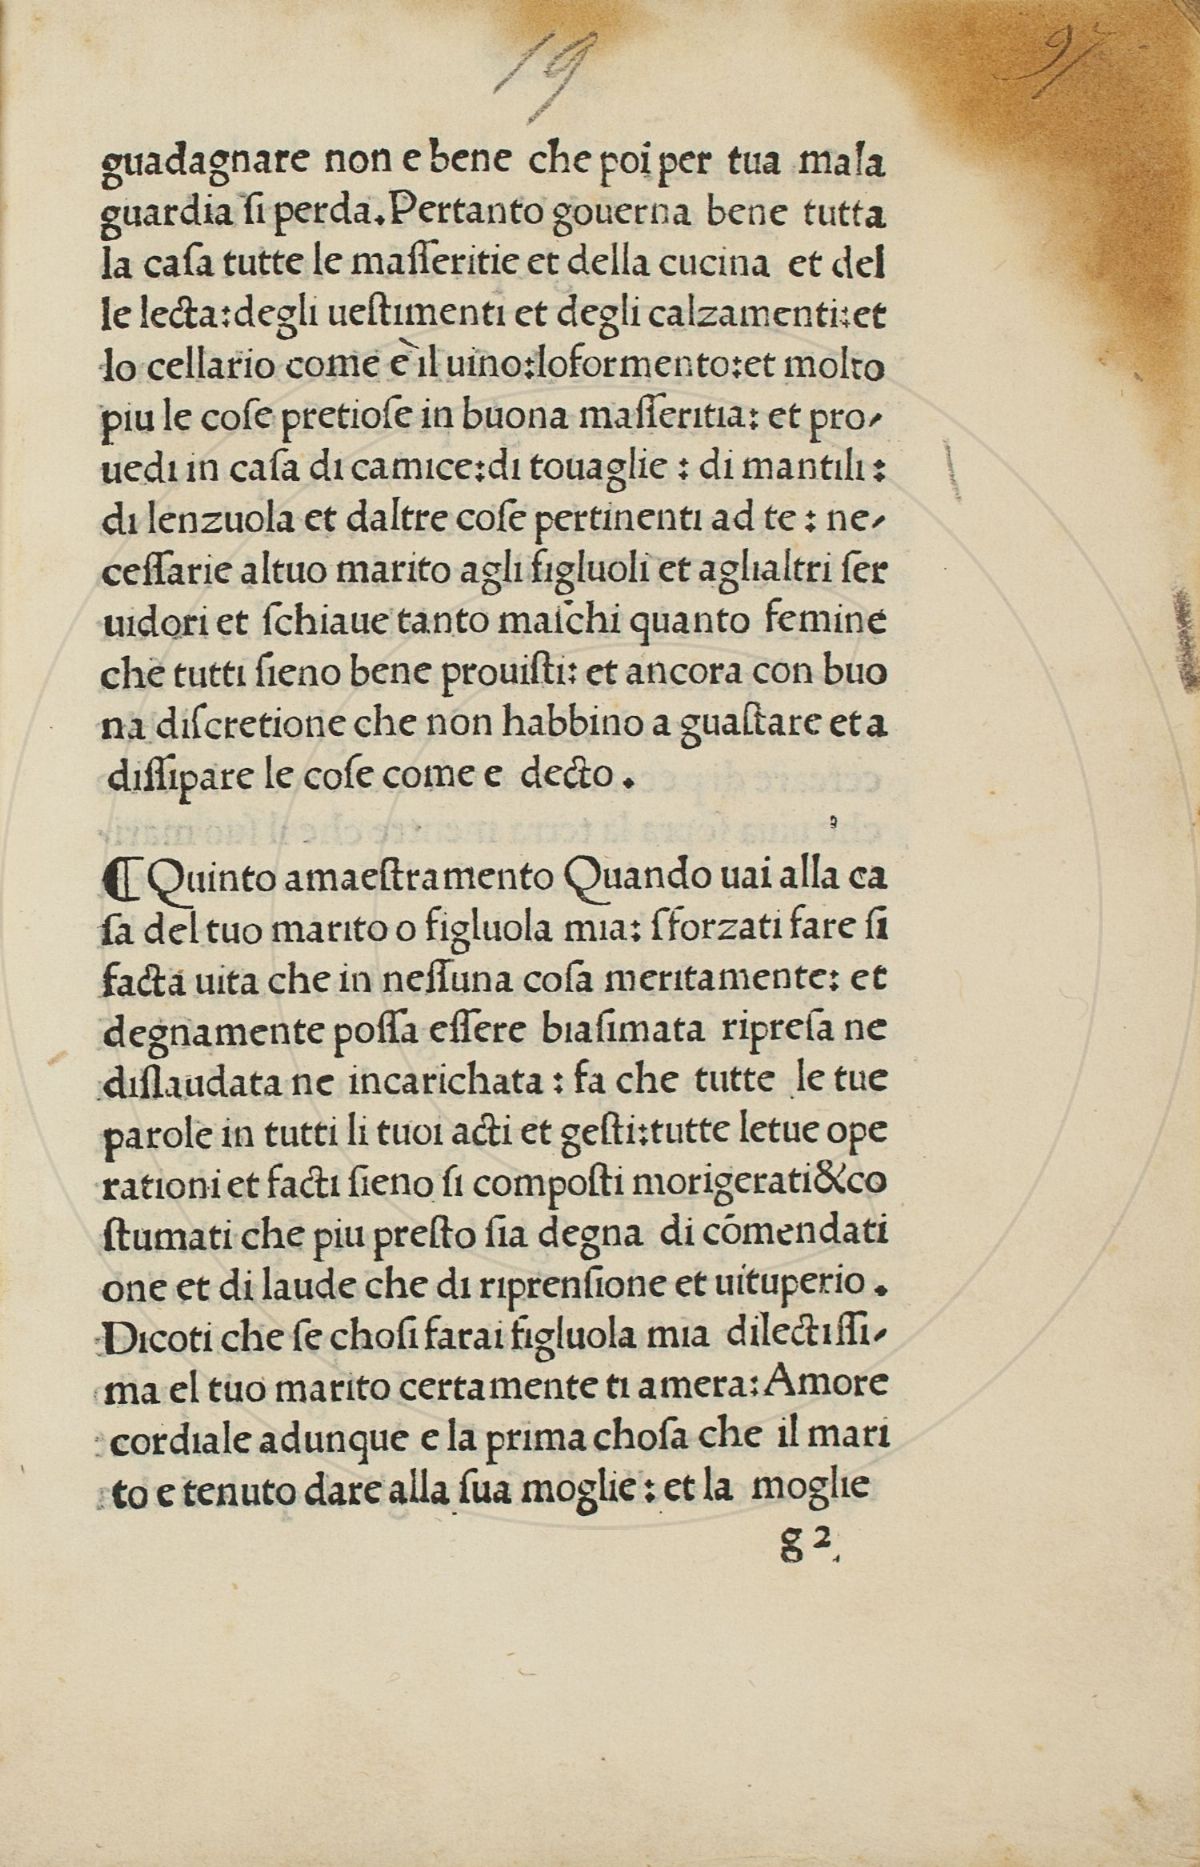 19
97
guadagnare non e bene che poi per tua mala
guardia ſi perda.Pertanto gouerna bene tutta
la caſa tutte le maſſeritie et della cucina et del
le lecta:degli ueſtimenti et degli calzamenti:et
lo cellario come è il uino:loformento:et molto
piu le coſe pretioſe in buona maſſeritia: et pro⸗
uedi in caſa di camice:di touaglie : di mantili :
di lenzuola et daltre coſe pertinenti ad te : ne⸗
ceſſarie altuo marito agli figluoli et aglialtri ſer
uidori et ſchiaue tanto maſchi quanto femine
che tutti ſieno bene prouiſti: et ancora con buo
na diſcretione che non habbino a guaſtare et a
diſſipare le coſe come e decto .
¶ Quinto amaeſtramento Quando uai alla ca
ſa del tuo marito o figluola mia: ſforzati fare ſi
facta uita che in neſſuna coſa meritamente: et
degnamente poſſa eſſere biaſimata ripreſa ne
diſlaudata ne incarichata : fa che tutte le tue
parole in tutti li tuoi acti et geſti:tutte letue ope
rationi et facti ſieno ſi compoſti morigerati&co
ſtumati che piu preſto ſia degna di cōmendati
one et di laude che di riprenſione et uituperio .
Dicoti che ſe choſi farai figluola mia dilectiſſi⸗
ma el tuo marito certamente ti amera:Amore
cordiale adunque e la prima choſa che il mari
to e tenuto dare alla ſua moglie : et la moglie
g 2